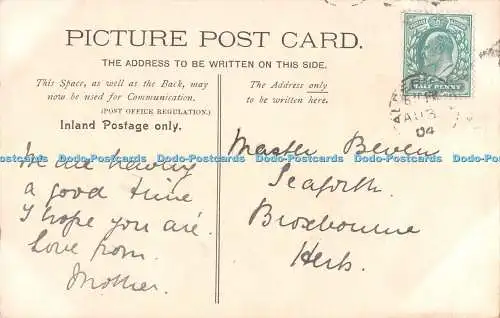 PICTURE POST CARD.
THE ADDRESS TO BE WRITTEN ON THIS SIDE.
This Space, as well as the Back, may
now be used for Communication.
(POST OFFICE REGULATION.)
Inland Postage only.
The Address only
to be written here.
HALF PENNY
AU 3
04
We are having
a good time
I hope you are.
Love from
Mother.
Master Beven
Seaforth
Broxbourne
Herts.
Dodo-Postcards Dodo-Postcards Dodo-Postcards Dodo-Postcards Dodo-Postcards Dodo-Postcards
Dodo-Postcards Dodo-Postcards Dodo-Postcards Dodo-Postcards Dodo-Postcards Dodo-Postcards